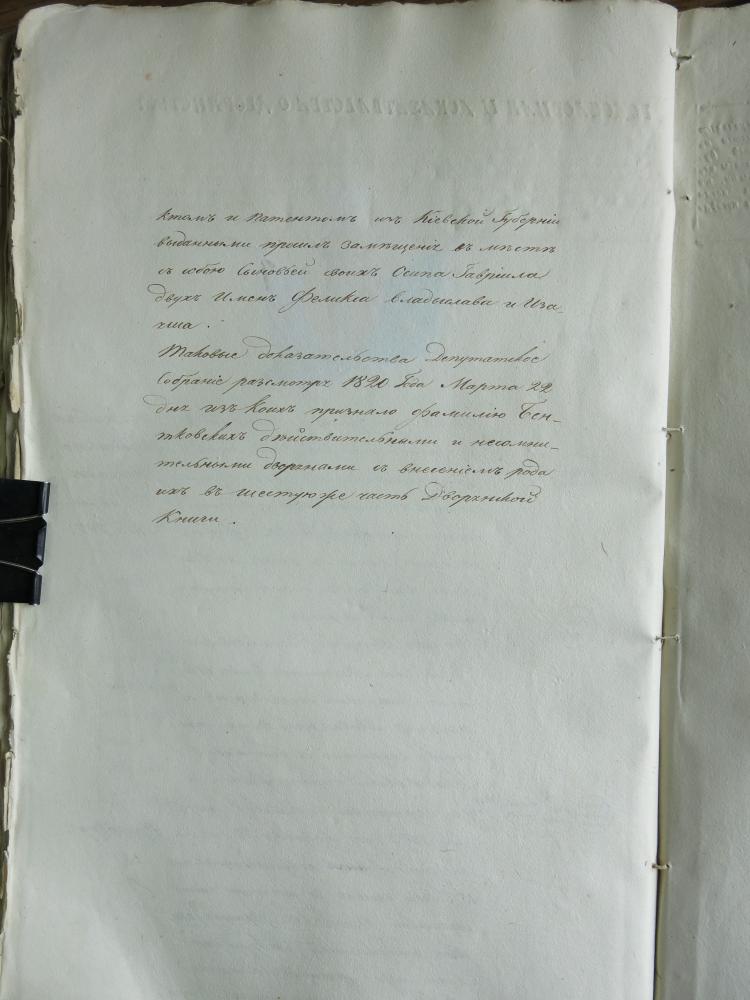 ктомъ и Патентомъ изъ Кіевской Губерніи
выданными просилъ замѣщенія въ мѣстѣ
съ собою Сыновьей своихъ Осипа Гавріила
двухъ Именъ Феликса владыслава и Иза-
Таковые доказательства Депутатское
Собраніе разсмотря 1820 Года Марта 22
дня изъ Коихъ признало фамилію Бен-
тковскихъ дѣйствительными и несомни-
тельными дворянами съ внесеніемъ рода
ихъ въ шестую же часть Дворянской
Книги.